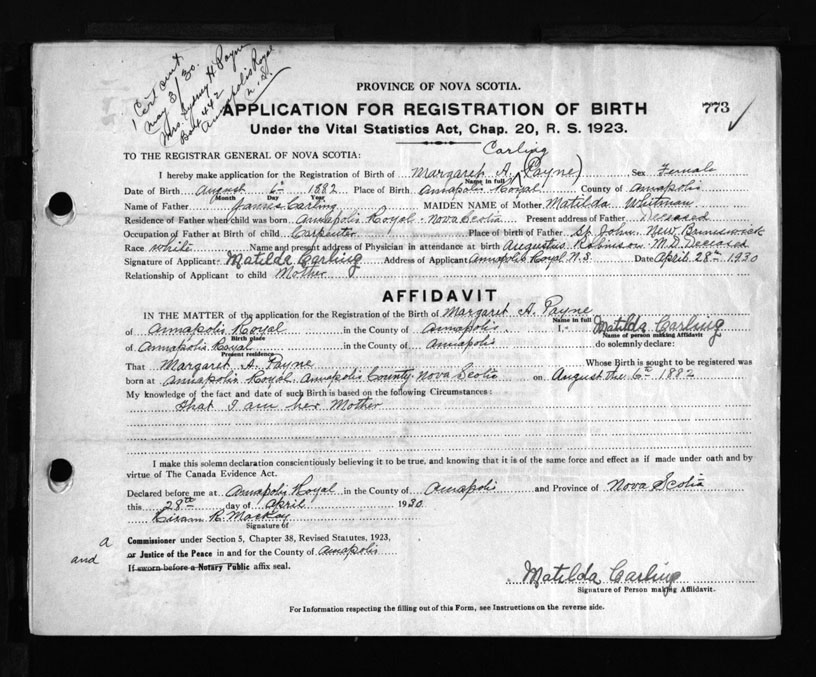 1 Cert. sent
May 3/30.
Mrs. Sydney H. Payne
Box 442
Annapolis Royal
N.S.
PROVINCE OF NOVA SCOTIA.
APPLICATION FOR REGISTRATION OF BIRTH 773
Under the Vital Statistics Act, Chap. 20, R. S. 1923.
Carling
TO THE REGISTRAR GENERAL OF NOVA SCOTIA:
I hereby make application for the Registration of Birth of Margaret A. (Payne) Sex Female
Name in full
Date of Birth August 6th 1882 Place of Birth Annapolis Royal County of Annapolis
Month Day Year
Name of Father James Carling MAIDEN NAME of Mother Matilda Whitman
Residence of Father when child was born Annapolis Royal Nova Scotia Present address of Father Deceased
Occupation of Father at Birth of child Carpenter Place of birth of Father St. John, New Brunswick
Race white Name and present address of Physician in attendance at birth Augustus Robinson M.D. Deceased
Signature of Applicant Matilda Carling Address of Applicant Annapolis Royal N.S. Date April 28th 1930
Relationship of Applicant to child Mother
AFFIDAVIT
IN THE MATTER of the application for the Registration of the Birth of Margaret A. Payne
Name in full
of Annapolis Royal in the County of Annapolis I- Matilda Carling
Birth place Name of person making Affidavit
of Annapolis Royal in the County of Annapolis do solemnly declare:
Present residence
That Margaret A. Payne Whose Birth is sought to be registered was
born at Annapolis Royal, Annapolis County, Nova Scotia on August the 6th 1882
My knowledge of the fact and date of such Birth is based on the following Circumstances:
that I am her Mother
I make this solemn declaration conscientiously believing it to be true, and knowing that it is of the same force and effect as if made under oath and by
virtue of The Canada Evidence Act.
Declared before me at Annapolis Royal in the County of Annapolis and Province of Nova Scotia
this 28th day of April 1930
Hiram R. MacKay
Signature of
a Commissioner under Section 5, Chapter 38, Revised Statutes, 1923,
and or Justice of the Peace in and for the County of Annapolis
If sworn before a Notary Public affix seal.
Matilda Carling
Signature of Person making Affidavit.
For Information respecting the filling out of this Form, see Instructions on the reverse side.